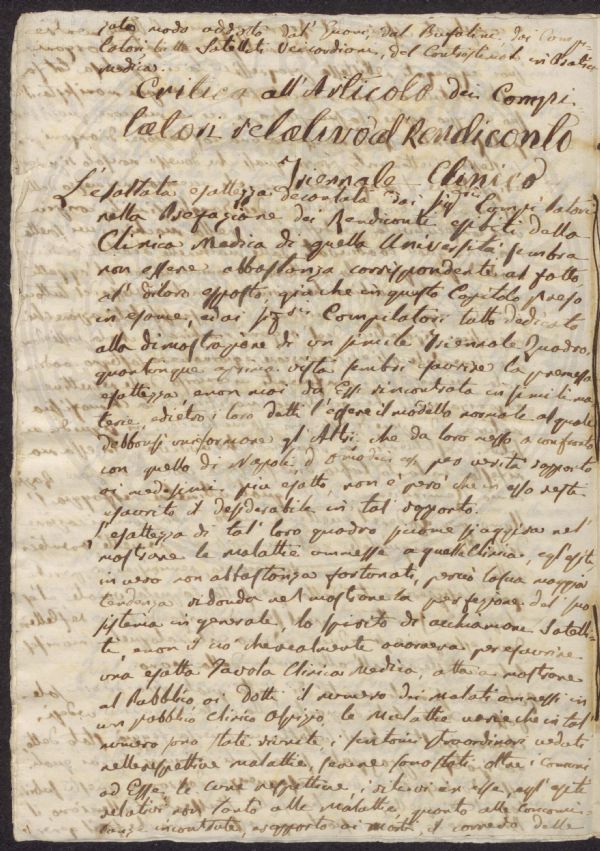 modo addotto dall' Zuoni, dal Bufalini, dai Compi
latori Satelliti del Controstimolo in Pratica
medica.
Critica all'Articolo dei Compi
latori relativo al Rendiconto
Triennale Clinico
L'esattata esattezza decantata dai Sig.ri Compilatori
nella Prefazione dei Rendiconti esibiti dalla
Clinica Medica di quella Università sembra
non essere abbastanza corrispondente al fatto
al diloro esposto, giacchè in questo Capitolo preso
in esame, e dai Sig.ri Compilatori tutto dedicato
alla dimostrazione di un simile Triennale Quadro,
quantunque a prima vista sembri favorire la premessa
esattezza, e non mai da Essi rincontrata in simili ma
terie, e dietro i loro detti l'essere il modello normale al quale
debbonsi uniformare gl' Altri, che da loro messo a confronto
con quello di Napoli, d' per verità rapporto
ai medesimi più esatto, non è però che in esso resti
esaurito il desiderabile in tal rapporto.
L'esattezza di tal loro quadro siccome s'aggira nel
mostrare le malattie ammesse a quella Clinica, egl'esiti
in vero non abbastanza fortunati, perciò la sua maggior
tendenza ridonda nel mostrare la perfezione del suo
sistema in generale, lo spirito di acchiamare Satelli
ti, e non il ciò che realmente onorava per esaurire
una esatta Tavola Clinica Medica, atta a mostrare
al Pubblico ai Dotti il numero dei malati ammessi in
un pubblico Clinico Ospizio, le Malattie varie che in tal
numero sono state vedute, i sintomi straordinari veduti
nelle respettive malattie, se ne sono stati, oltre i Comuni
ad Esse, le cure respettive, i rilievi in esse, egl'esiti
relativi non tanto alle malattie, quanto alle Concomi
tanze incontrate, e rapporto ai morti, il corredo delle